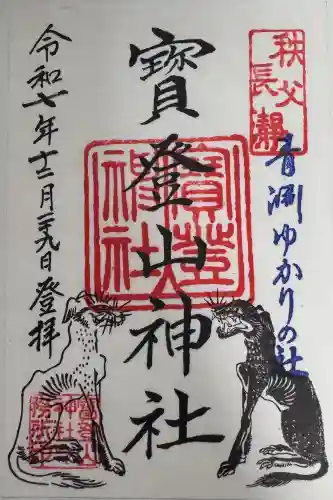 秩父
長瀞
青淵ゆかりの社
寳登山神社
寳登
山神
社
令和七年十二月二十九日登拝
寳登山
神社
務所